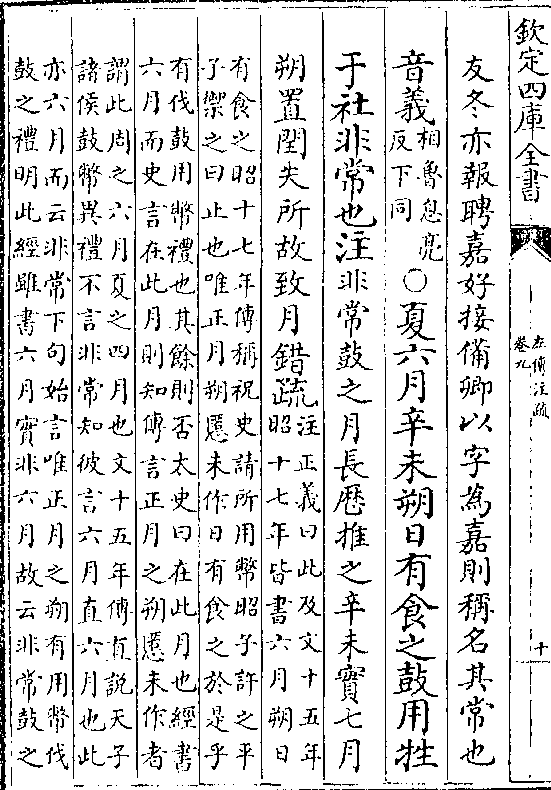 欽定四庫全書
左傳注疏
卷九
十
友冬亦報聘嘉好接備卿以字為嘉則稱名其常也
音義相魯息亮反下同○夏六月辛未朔日有食之鼓用牲
于社非常也注非常鼓之月長厯推之辛未實七月
朔置閏失所故致月錯疏注正義曰此及文十五年
昭十七年皆書六月朔日
有食之昭十七年傳稱祝史請所用幣昭子許之平
子禦之曰止也唯正月朔慝未作日有食之於是乎
有伐鼓用幣禮也其餘則否太史曰在此月也經書
六月而史言在此月則知傳言正月之朔慝未作者
謂此周之六月夏之四月也文十五年傳直說天子
諸侯鼓幣異禮不言非常知彼言六月直六月也此
亦六月而云非常下句始言唯正月之朔有用幣伐
鼓之禮明此經雖書六月實非六月故云非常鼓之